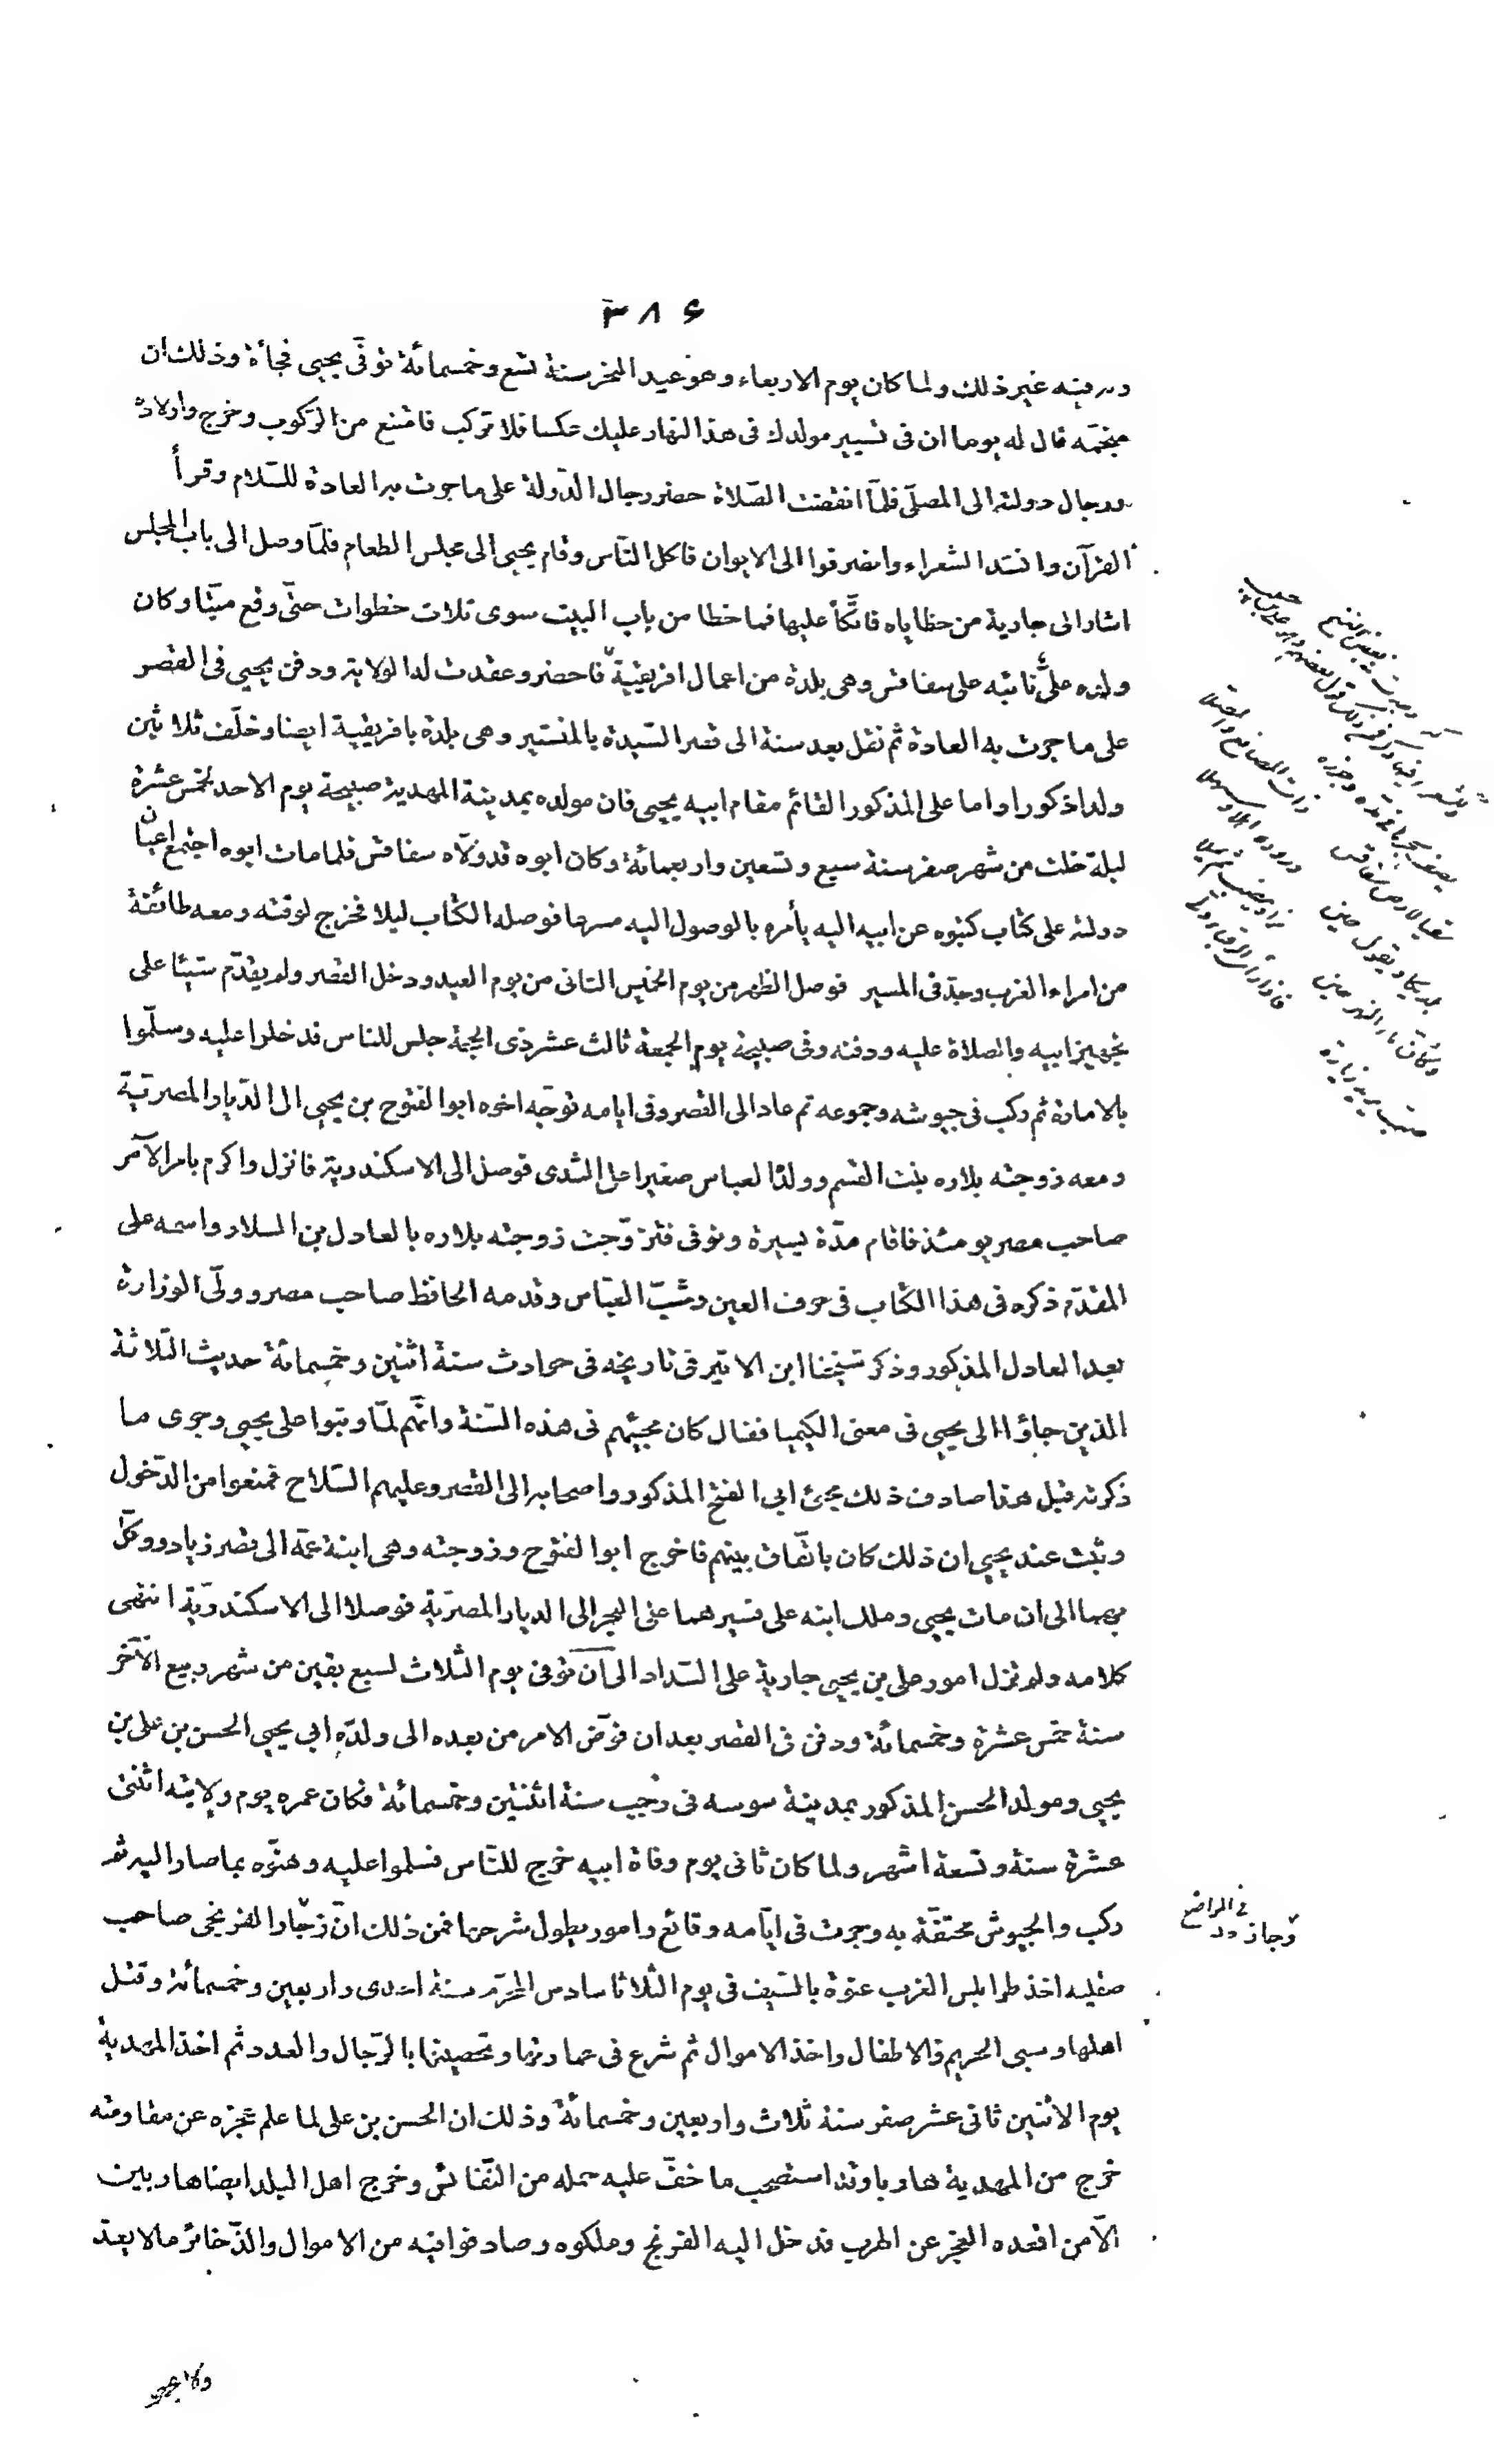 ٣٨۶
ورقيته غير ذلك ولما كان يوم الاربعاء وهو عيد النحر سنة تسع وخمسمائة توفّى يحيى فجأة وذلك ان
منجّمه قال له يوما ان فى تسيير مولدك فى هذا النهار عليك عكسا فلا تركب فامتنع من الرّكوب وخرج واولاده
ورجال دولته الى المصلّى فلمّا انقضت الصّلاة حضر رجال الدّولة على ماجرت به العادة للسّلام وقرأ
القرآن وانشد الشعراء وانصرفوا الى الايوان فاكل النّاس وقام يحيى الى مجلس الطعام فلمّا وصل الى باب المجلس
اشار الى جارية من حظاياه فاتّكأ عليها فما خطا من باب البيت سوى ثلاث خطوات حتّى وقع ميّتا وكان
ولده علىّ نائبه على سفاقس وهى بلدة من اعمال افريقيّة فاحضر وعقدت له الولاية ودفن يحيى فى القصر
على ماجرت به العادة ثم نقل بعد سنة الى قصر السّيدة بالمنستير وهى بلدة بافريقية ايضا وخلّف ثلاثين
ولدا ذكورا واما على المذكور القائم مقام ابيه يحيى فان مولده بمدينة المهدية صبيحة يوم الاحد لخمس عشرة
ليلة خلت من شهر صفر سنة سبع وتسعين واربعمائة وكان ابوه قد ولّاه سفاقس فلما مات ابوه اجتمع اعيان
دولته على كتاب كتبوه عن ابيه اليه يأمره بالوصول اليه مسرعا فوصله الكتاب ليلا فخرج لوقته ومعه طائفة
من امراء العرب وجدّ فى المسير فوصل الظهر من يوم الخميس الثانى من يوم العيد ودخل القصر ولم يقدّم شيئا على
تجهيز ابيه والصلاة عليه ودفنه وفى صبيحة يوم الجمعة ثالث عشر ذى الحجة جلس للناس فدخلوا عليه وسلّموا
بالامارة ثم ركب فى جيوشه وجموعه ثم عاد الى القصر وفى ايامه توجّه اخوه ابوالفتوح بن يحيى الى الدّيار المصريّة
ومعه زوجته بلاره بنت القسم وولدا لعباس صغيرا على الثدى فوصل الى الاسكندرية فانزل واكرم بامر الآمر
صاحب مصر يومئذ فاقام مدّة يسيرة وتوفى فتزوّجت زوجته بلاره بالعادل بن السلار واسمه على
المقدّم ذكره فى هذا الكتاب فى حرف العين وشبّ العبّاس وقدمه الحافظ صاحب مصر وولّى الوزارة
بعد العادل المذكور وذكر شيخنا ابن الاثير فى تاريخه فى حوادث سنة اثنين وخمسمائة حديث الثّلاثة
الذين جاؤا الى يحيى فى معنى الكيميا فقال كان مجيئهم فى هذه السّنة وانّهم لمّا وثبوا على يحيى وجرى ما
ذكرته قبل هذا صادف ذلك مجئ ابى الفتح المذكور واصحابه الى القصر وعليهم السّلاح فمنعوا من الدّخول
وثبت عند يحيى ان ذلك كان باتّفاق بينهم فاخرج ابوالفتوح وزوجته وهى ابنة عمّه الى قصر زياد ووكّل
بهما الى ان مات يحيى وملك ابنه على فسيرهما على البحر الى الديار المصريّة فوصلا الى الاسكندريّة انتهى
كلامه ولم تزل امور على بن يحيى جارية على السّداد الى ان توفى يوم الثلاث لسبع بقين من شهر ربيع الآخر
سنة خمس عشرة وخمسمائة ودفن فى القصر بعد ان فوّض الامر من بعده الى ولدّه ابى يحيى الحسن بن على بن
يحيى ومولد الحسن المذكور بمدينة سوسه فى رجب سنة اثنتين وخمسمائة فكان عمره يوم ولايته اثنتى
عشرة سنة وتسعة اشهر ولما كان ثانى يوم وفاة ابيه خرج للنّاس فسلموا عليه وهنّوه بما صار اليه ثم
ركب والجيوش محتفّة به وجرت فى ايّامه وقائع وامور يطول شرحها فمن ذلك انّ زجّار الفرنجى صاحب
صقليه اخذ طرابلس الغرب عنوة بالسّيف فى يوم الثلاثا سادس المحرّم سنة احدى واربعين وخمسمائة وقتل
اهلها وسبى الحريم والاطفال واخذ الاموال ثم شرع فى عمارتها وتحصينها بالرّجال والعدد ثم اخذ المهدية
يوم الاثنين ثانى عشر صفر سنة ثلاث واربعين وخمسمائة وذلك ان الحسن بن على لما علم عجزه عن مقاومته
خرج من المهدية هاربا وقد استصحب ما خفّ عليه حمله من النّفائس وخرج اهل البلد ايضا هاربين
الّا من اقعده العجز عن الهرب فدخل اليه الفرنج وملكوه وصادفوا فيه من الاموال والذّخائر ما لا يعدّ
سقيا لارض سفاقس
ذات المصانع والمصلى
بلد يكاد يقول حين
تزوره اهلا وسهلا
صب يريد زيارة
فى المواضع
وجاز
ولا